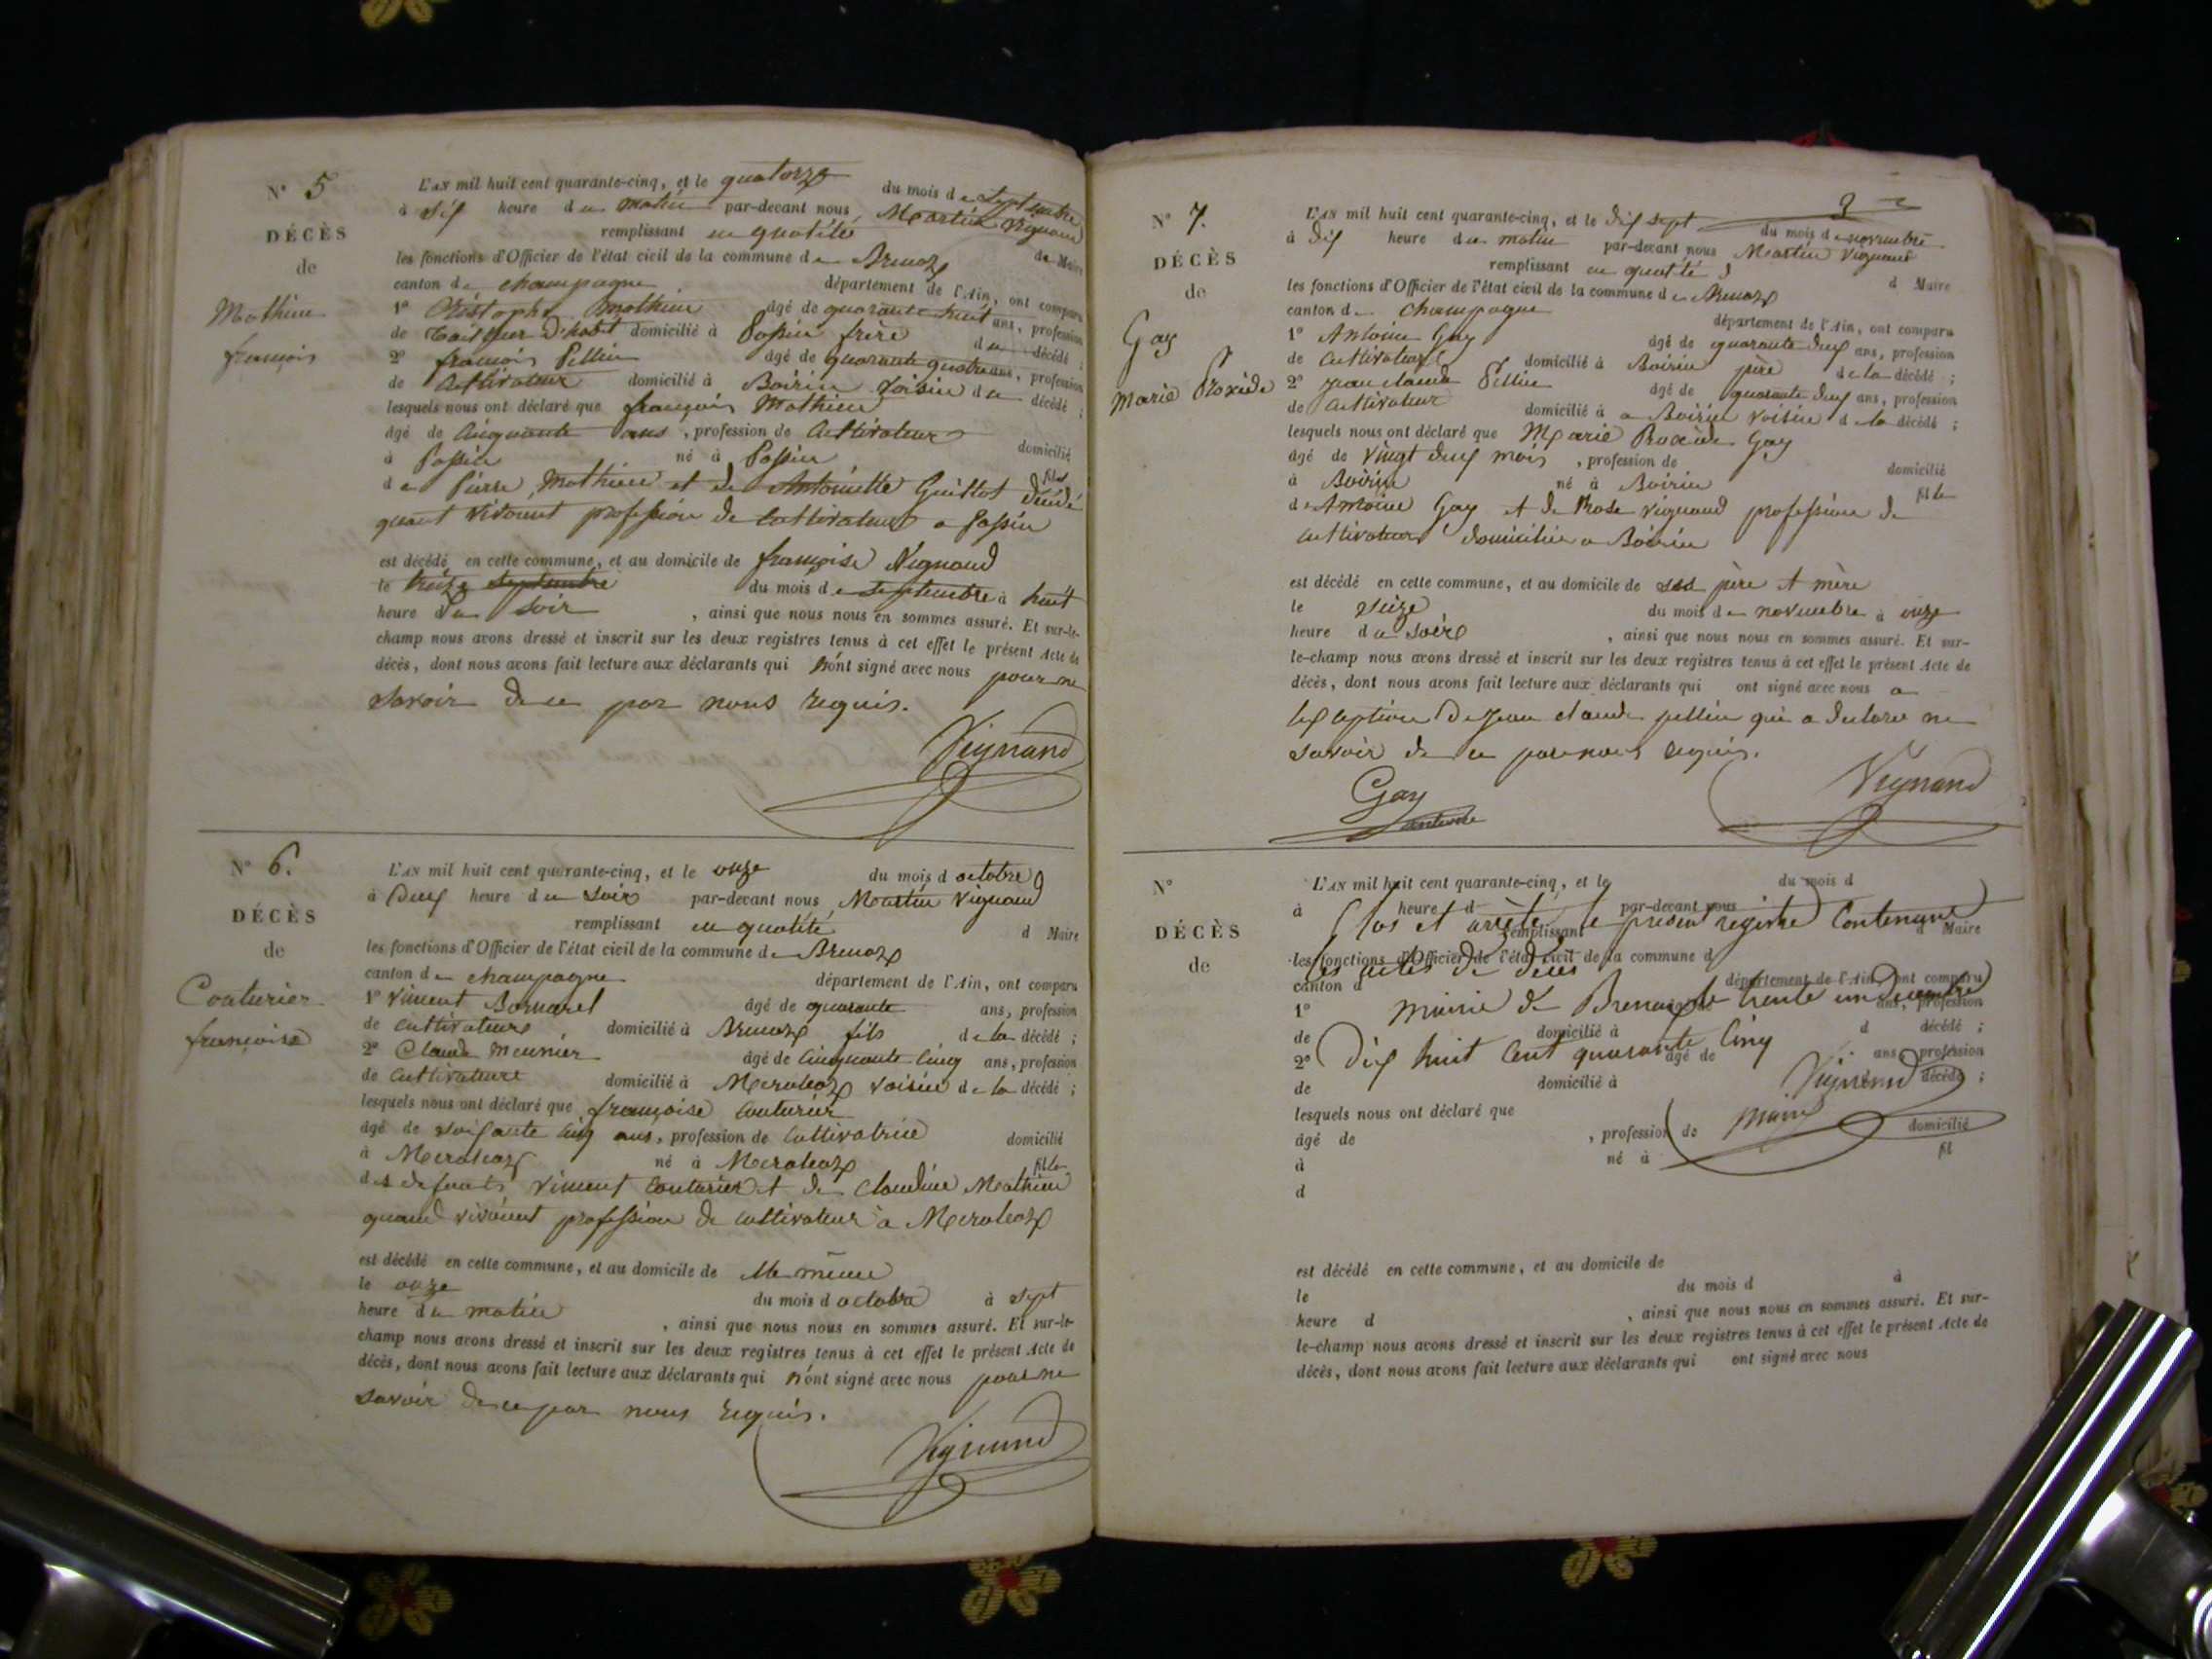 N° 5
DÉCÈS
de
Mathieu
françois
L'AN mil huit cent quarante-cinq, et le quatorze du mois de septembre
à six heure du matin par-devant nous Martin Vignand
remplissant en qualité de Maire
les fonctions d'Officier de l'état civil de la commune de Brenaz
canton de champagne département de l'Ain, ont comparu
1° Mathieu âgé de quarante huit ans, profession
de tailleur d'habit domicilié à Possin frère du décédé ;
2° françois Pellin âgé de quarante quatre ans, profession
de Cultivateur domicilié à Boirin voisin du décédé ;
lesquels nous ont déclaré que françois Mathieu
âgé de cinquante ans, profession de Cultivateur domicilié
à Possin né à Possin fils
de Pierre Mathieu et de Antoinette Guillot
quant vivaient profession de Cultivateur a Possin
est décédé en cette commune, et au domicile de françoise Vignand
le treize septembre du mois de septembre à huit
heure du soir , ainsi que nous nous en sommes assuré. Et sur-le-
champ nous avons dressé et inscrit sur les deux registres tenus à cet effet le présent Acte de
décès, dont nous avons fait lecture aux déclarants qui n'ont signé avec nous pour ne
savoir de ce par nous requis.
Vignand
N° 6.
DÉCÈS
de
Couturier
françoise
L'AN mil huit cent quarante-cinq, et le onze du mois d octobre
à Deux heure du soir par-devant nous Martin Vignand
remplissant en qualité d Maire
les fonctions d'Officier de l'état civil de la commune de Brenaz
canton de champagne département de l'Ain, ont comparu
1° Vincent Bornarel âgé de quarante ans, profession
de cultivateur, domicilié à Brenaz fils de la décédé ;
2° Claude Meunier âgé de cinquante cinq ans, profession
de Cultivateur domicilié à Meraleaz voisin de la décédé ;
lesquels nous ont déclaré que françoise Couturier
âgé de soixante cinq ans, profession de Cultivatrice domicilié
à Meraleaz né à Meraleaz fille
des defunts Vincent Couturier et de Claudine Mathieu
quand vivaient profession de cultivateur a Meraleaz
est décédé en cette commune, et au domicile de elle même
le onze du mois d octobre à sept
heure du matin , ainsi que nous nous en sommes assuré. Et sur-le-
champ nous avons dressé et inscrit sur les deux registres tenus à cet effet le présent Acte de
décès, dont nous avons fait lecture aux déclarants qui n'ont signé avec nous pour ne
savoir de ce par nous requis.
Vignand
N° 7.
DÉCÈS
de
Gay
Marie Proxède
L'AN mil huit cent quarante-cinq, et le dix sept du mois de novembre
à dix heure du matin par-devant nous Martin Vignand
remplissant en qualité d Maire
les fonctions d'Officier de l'état civil de la commune de Brenaz
canton de Champagne département de l'Ain, ont comparu
1° Antoine Gay âgé de quarante deux ans, profession
de cultivateur domicilié à Boirin père de la décédé ;
2° Jean claude Pellin âgé de quarante deux ans, profession
de Cultivateur domicilié à a Boirin voisin de la décédé ;
lesquels nous ont déclaré que Marie Gay
âgé de vingt deux mois , profession de domicilié
à Boirin né à Boirin fille
d'Antoine Gay et de Rose Vignand profession de
cultivateur domicilié a Boirin
est décédé en cette commune, et au domicile de ses père et mère
le seize du mois de novembre à onze
heure du soir , ainsi que nous nous en sommes assuré. Et sur-
le-champ nous avons dressé et inscrit sur les deux registres tenus à cet effet le présent Acte de
décès, dont nous avons fait lecture aux déclarants qui ont signé avec nous a
lexception de Jean claude pellin qui a declaré ne
savoir de ce par nous requis.
Gay
antoine
Vignand
N°
DÉCÈS
de
L'AN mil huit cent quarante-cinq, et le du mois d
à heure d par-devant nous
remplissant d Maire
Clos et arrêté le présent registre Contenant
les fonctions d'Officier de l'état civil de la commune d
les actes de décès
canton d département de l'Ain, ont comparu
1° âgé de ans, profession
mairie de Brenaz le trente un Décembre
de domicilié à d décédé ;
Dix huit Cent quarante Cinq
2° âgé de ans, profession
Vignand
de domicilié à décédé ;
maire
lesquels nous ont déclaré que
âgé de , profession de domicilié
à né à fil
d
est décédé en cette commune, et au domicile de
le du mois d à
heure d , ainsi que nous nous en sommes assuré. Et sur-
le-champ nous avons dressé et inscrit sur les deux registres tenus à cet effet le présent Acte de
décès, dont nous avons fait lecture aux déclarants qui ont signé avec nous